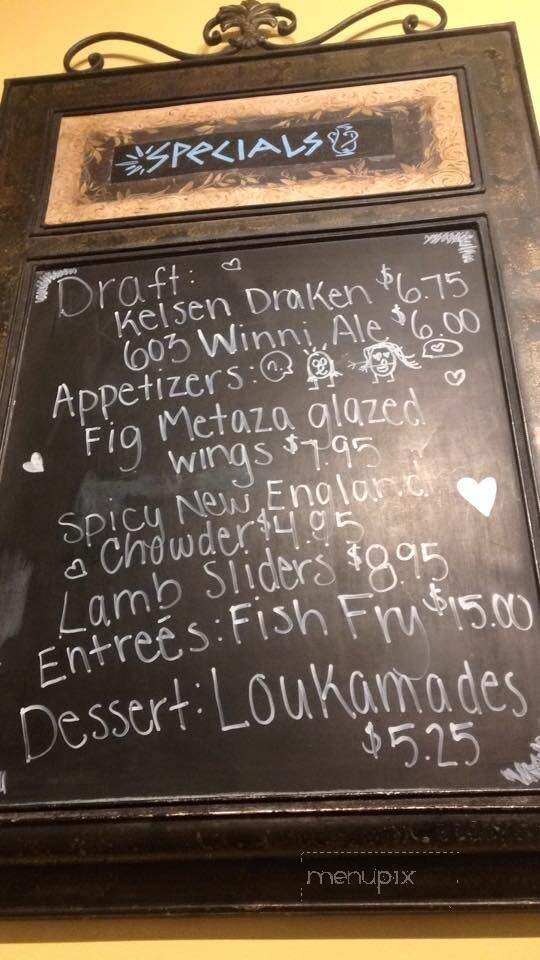 SPECIALS
Draft:
Kelsen Draken $6.75
603 Winni Ale $6.00
Appetizers:
Fig Metaza glazed
wings $7.95
Spicy New England
Chowder $4.95
Lamb Sliders $8.95
Entreés: Fish Fry $15.00
Dessert: Loukamades
$5.25
menupix